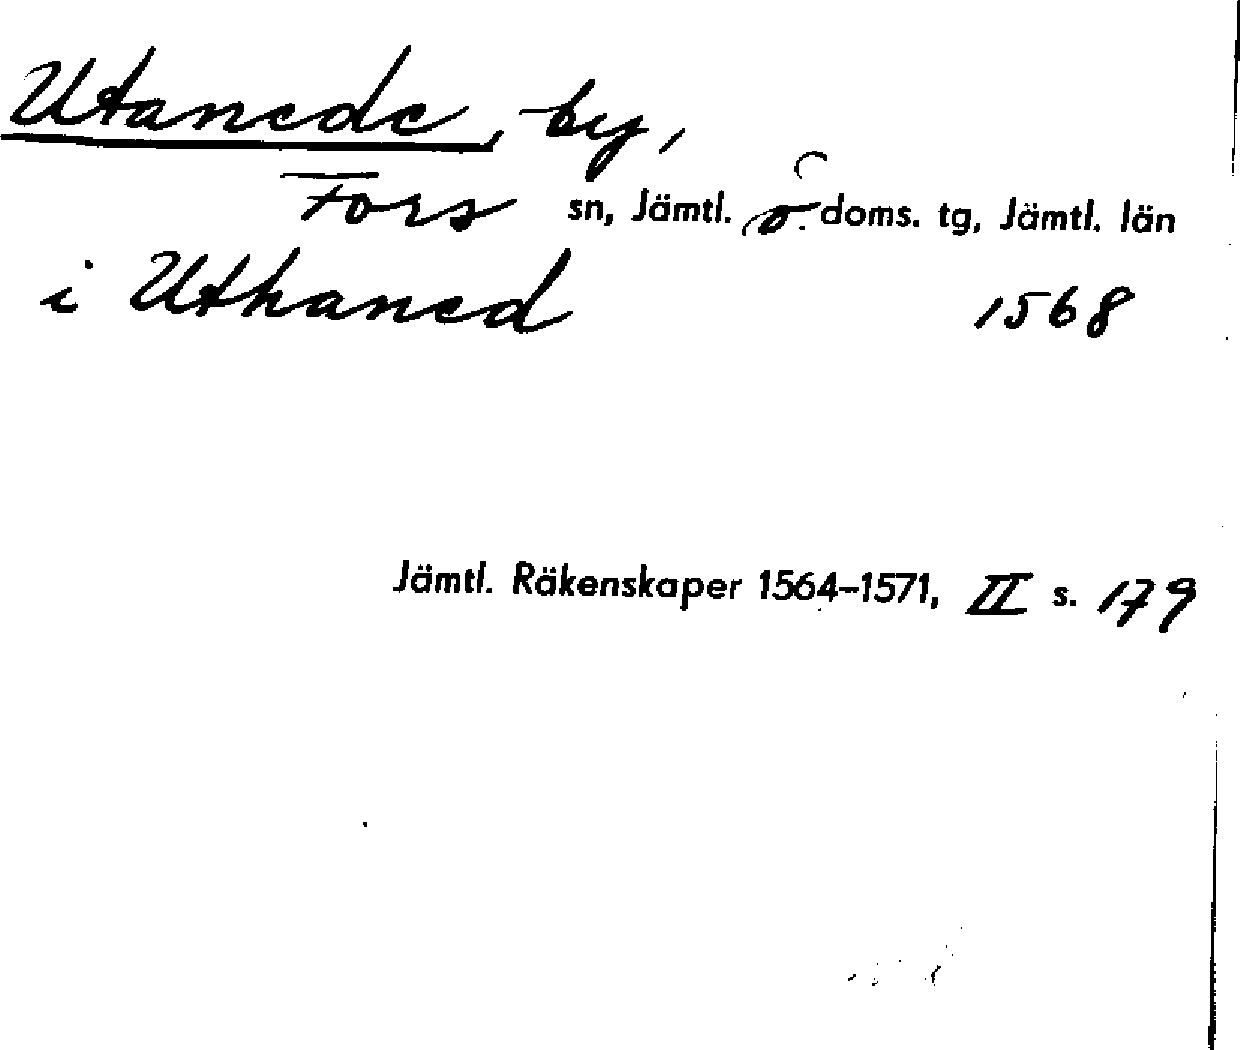 Utanede, by,
Fors sn, Jämtl. ö. doms. tg, Jämtl. län
i Uthaned 1568
Jämtl. Räkenskaper 1564–1571, II s. 179